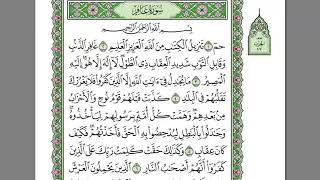 سُورَةُ غَافِرٍ
بِسْمِ ٱللَّهِ ٱلرَّحْمَٰنِ ٱلرَّحِيمِ
حمٓ ١ تَنزِيلُ ٱلْكِتَٰبِ مِنَ ٱللَّهِ ٱلْعَزِيزِ ٱلْعَلِيمِ ٢ غَافِرِ ٱلذَّنۢبِ
وَقَابِلِ ٱلتَّوْبِ شَدِيدِ ٱلْعِقَابِ ذِى ٱلطَّوْلِ لَآ إِلَٰهَ إِلَّا هُوَ إِلَيْهِ
ٱلْمَصِيرُ ٣ مَا يُجَٰدِلُ فِىٓ ءَايَٰتِ ٱللَّهِ إِلَّا ٱلَّذِينَ كَفَرُوا۟ فَلَا يَغْرُرْكَ
تَقَلُّبُهُمْ فِى ٱلْبِلَٰدِ ٤ كَذَّبَتْ قَبْلَهُمْ قَوْمُ نُوحٍ وَٱلْأَحْزَابُ
مِنۢ بَعْدِهِمْ وَهَمَّتْ كُلُّ أُمَّةٍۭ بِرَسُولِهِمْ لِيَأْخُذُوهُ
وَجَٰدَلُوا۟ بِٱلْبَٰطِلِ لِيُدْحِضُوا۟ بِهِ ٱلْحَقَّ فَأَخَذْتُهُمْ فَكَيْفَ
كَانَ عِقَابِ ٥ وَكَذَٰلِكَ حَقَّتْ كَلِمَتُ رَبِّكَ عَلَى ٱلَّذِينَ
كَفَرُوٓا۟ أَنَّهُمْ أَصْحَٰبُ ٱلنَّارِ ٦ ٱلَّذِينَ يَحْمِلُونَ ٱلْعَرْشَ